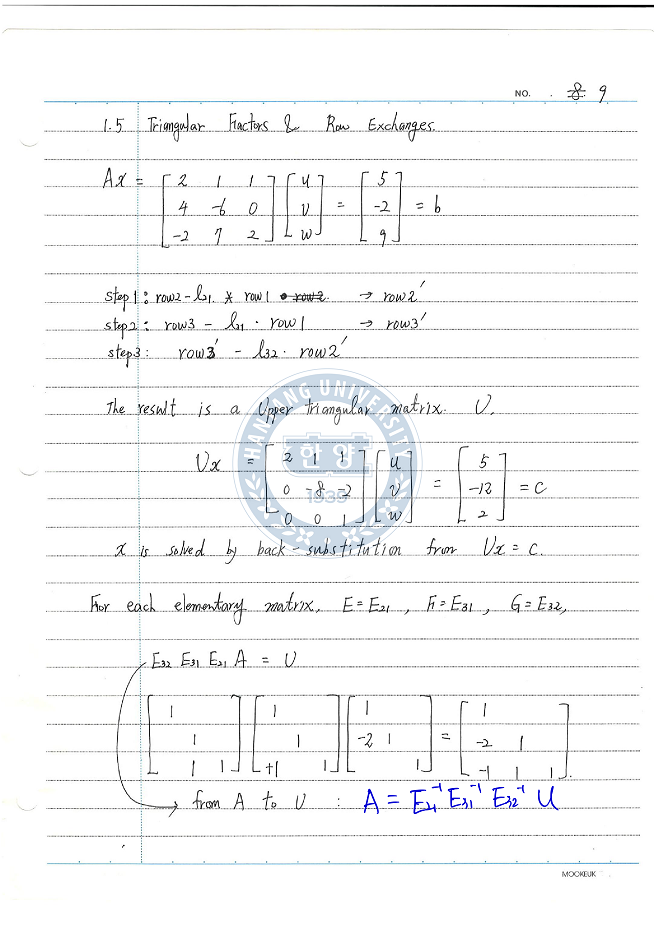 NO. 8 9
1.5 Triangular Factors & Row Exchanges.
Ax = [2 1 1; 4 -6 0; -2 7 2] [u; v; w] = [5; -2; 9] = b
step1: row2 - l21 * row1 → row2′
step2: row3 - l31 · row1 → row3′
step3: row3′ - l32 · row2′
The result is a Upper triangular matrix U.
Ux = [2 1 1; 0 -8 -2; 0 0 1] [u; v; w] = [5; -12; 2] = c
x is solved by back-substitution from Ux = c.
For each elementary matrix, E = E21, F = E31, G = E32,
E32 E31 E21 A = U
[1; 1; 1 1] [1; 1; +1 1] [1; -2 1; 1] = [1; -2 1; -1 1 1].
→ from A to U : A = E21⁻¹ E31⁻¹ E32⁻¹ U
MOOKEUK
HANYANG UNIVERSITY
한양
1939